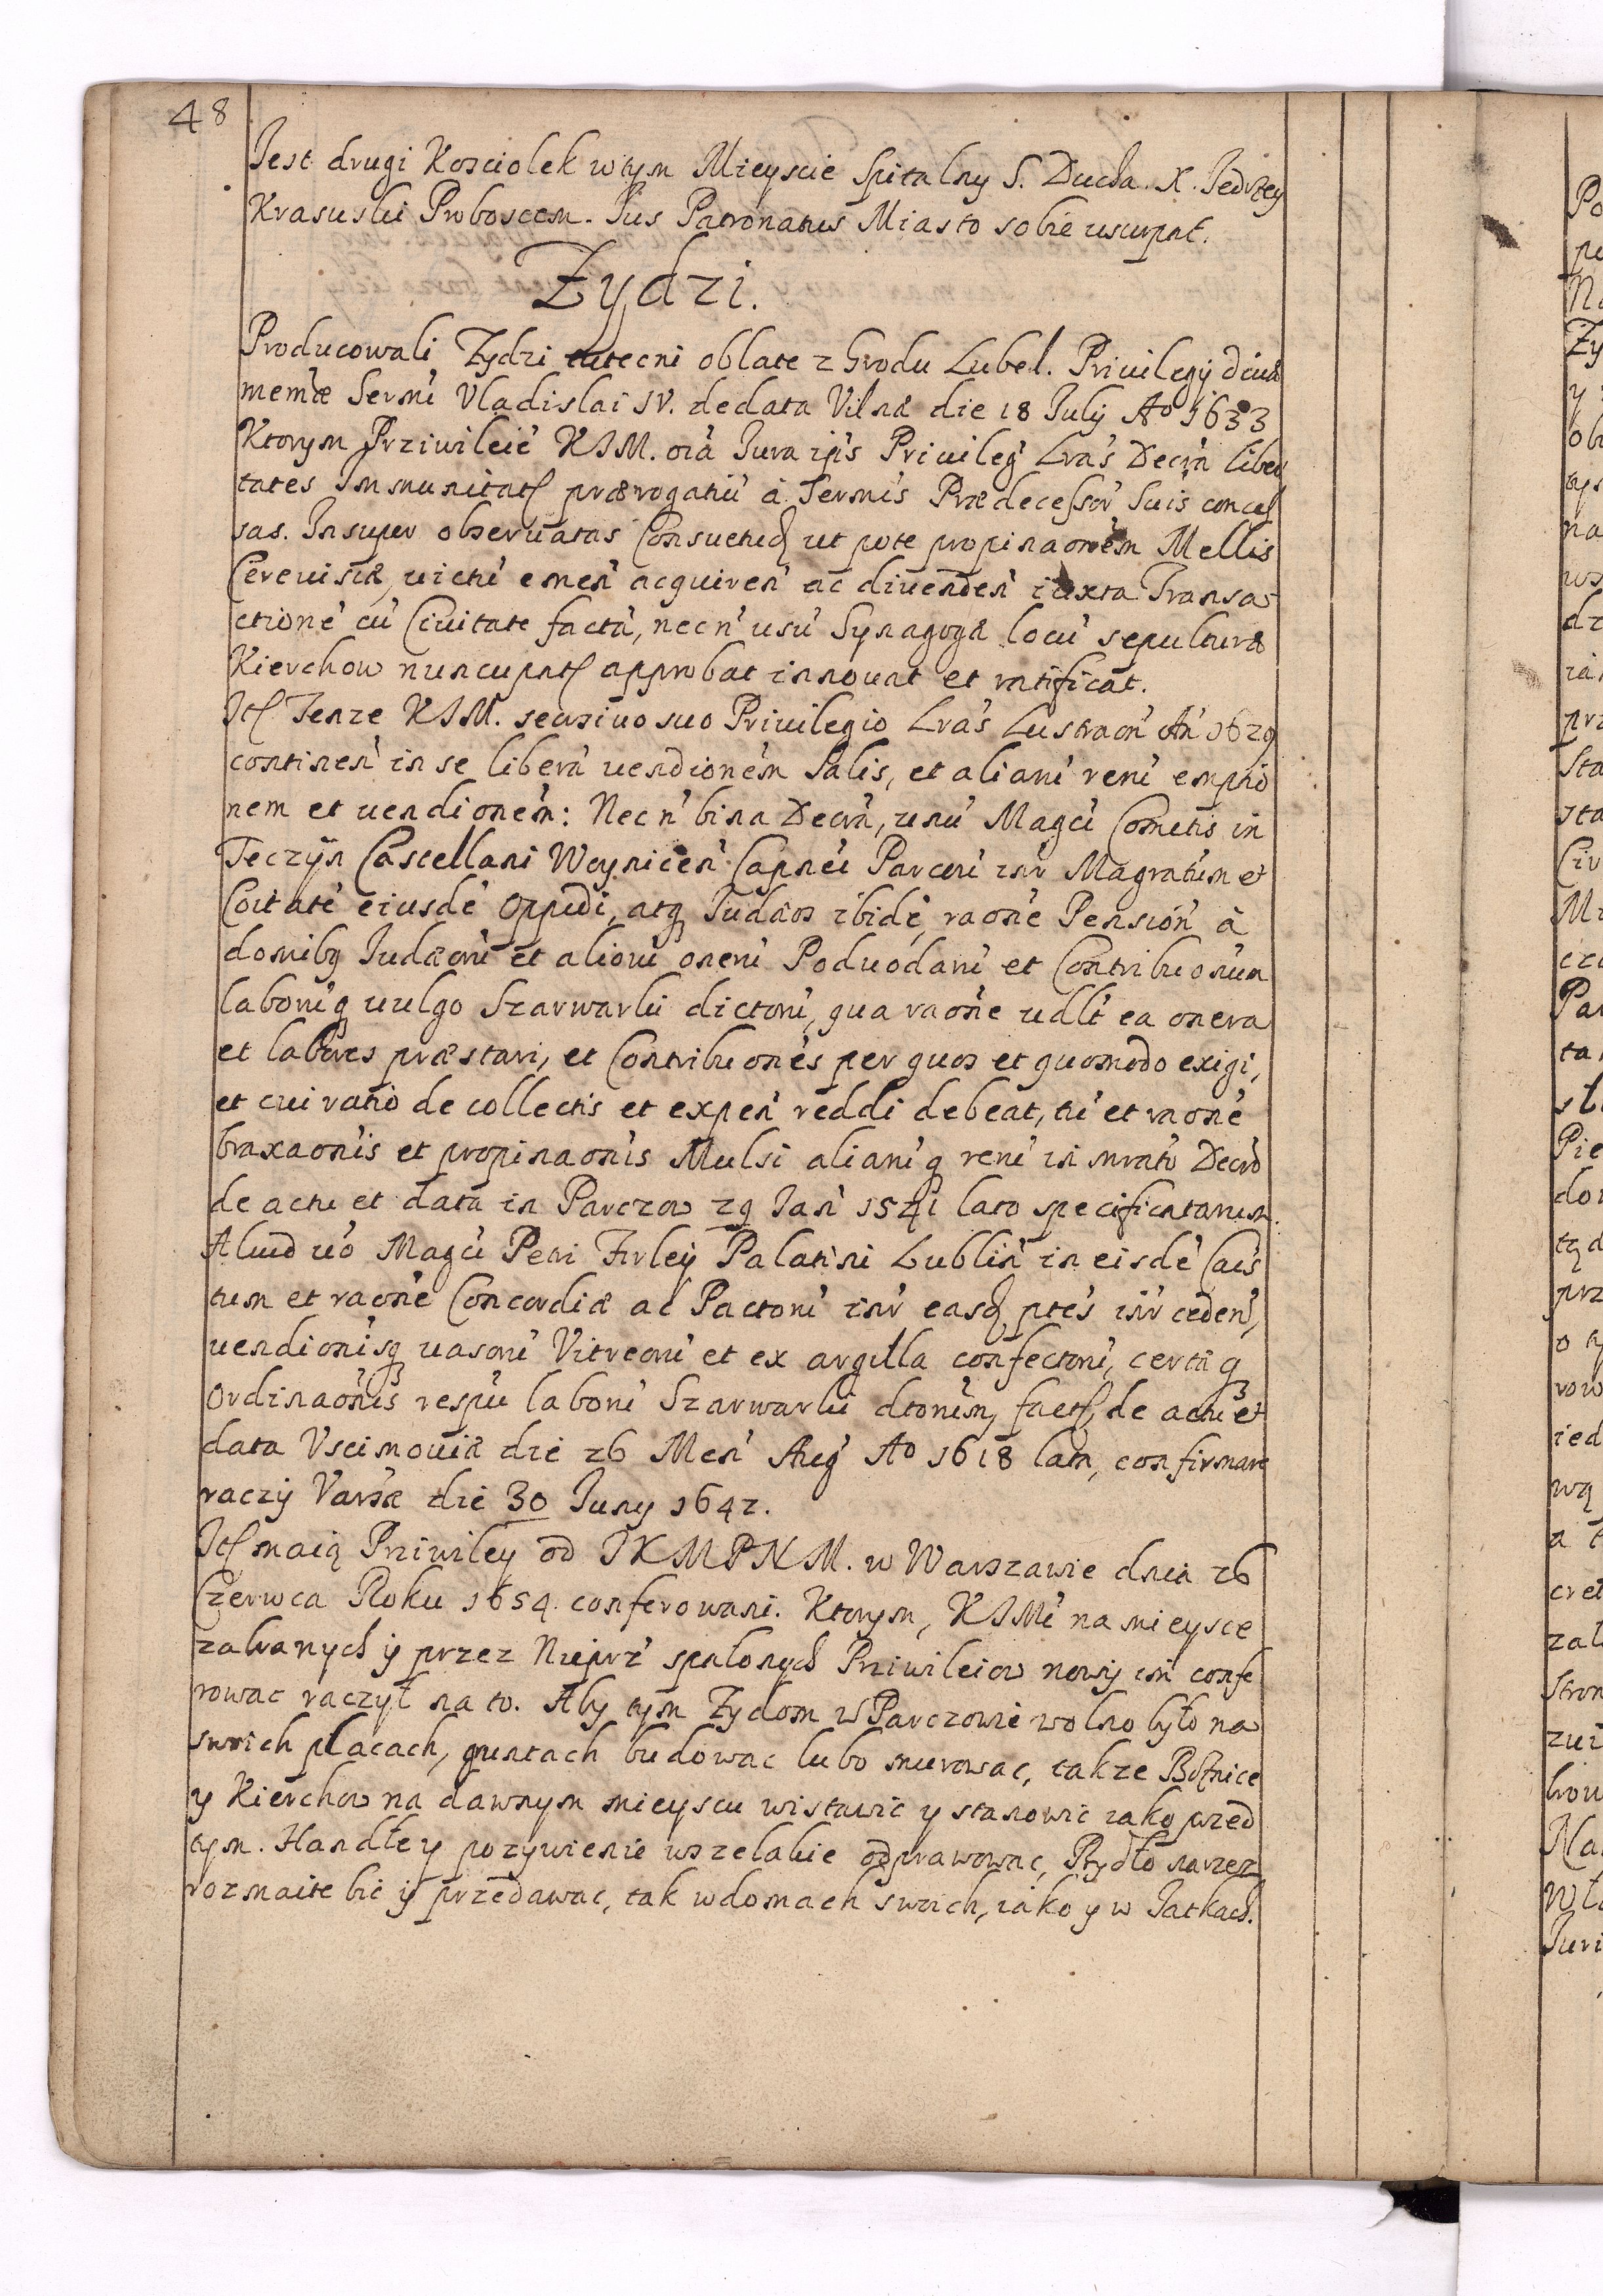 48
Jest drugi Kosciolek w tym Mieyscie Spitalny S. Ducha. X. Jedrzey
Krasuski Proboscem. Jus Patronatus Miasto sobie usurpat.
Zydzi.
Producowali Zydzi tutecni oblate z Grodu Lubel. Privilegÿ divæ
memæ Sermi Vladislai IV. de data Vilnæ die 18 Julÿ Ao 1633
Ktorym Prziwileie KJM. oīa Jura ipīs Privileg Lrās Decrā liber
tates Immunitat prærogatiu à Sermis Prædecessor Suis conces
sas. Insuper observatas Consuetud ut pote propinaonem Mellis
Cerevisiæ, victu emen acquiren ac divenden iuxta Transa-
ctione cu Civitate facta, necn usu Synagogæ locu sepulturæ
Kierchow nuncupat approbat innouat et ratificat.
It Tenze KJM. recursivo suo Privilegio Lras Lustraon An 1629
continen in se libera vendionem Salis, et aliaru reru emptio
nem et vendionem: Necn bina Decra, unu Magci Comitis in
Teczÿn Castellani Woynicen Capnei Parcoui intr Magratum et
Coitate eiusde Oppidi, atq Judæos ibide, raone Pension à
domibq Judæoru et alioru oneru Podvodaru et Contribuonum
laboruq vulgo Szarwarki dictoru, qua raone vdlt ea onera
et labores præstari, et Contribuones per quos et quomodo exigi,
et cui ratio de collectis et expen reddi debeat, tu et raone
braxaonis et propinaonis Mulsi aliaruq reru in mrato Decro
de actu et data in Parczow 29 Jan 1541 lato specificatarum.
Aliud vo Magci Petri Firleÿ Palatini Lublin in eisde Cais
tum et raone Concordiæ ac Pactoru intr easd ptes intr ceden,
vendionisq vasoru Vitreoru et ex argilla confectoru, certæq
Ordinaonis respu laboru Szarwarki dtorum, fact, de actu et
data Uscimoviæ die 26 Men Aug Ao 1618 lata, confirmare
raczÿ Varsæ die 30 Juny 1642.
It maią Priwiley od JKMPNM. w Warszawie dnia 26
Czerwca Roku 1654. conferowani. Ktorym, KJMć na mieysce
zabranych ÿ przez Nieprz spalonych Priwileiow nowÿ im confe
rowac raczył na to. Aby tym Zydom w Parczowie wolno było na
swoich placach, gruntach budowac lubo murowac, takze Boznice
y Kierchow na dawnym mieyscu wistawic y stanowic iako przed
tym. Handle y pozywienie wszelakie odprawowac, Bydło na rzez
rozmaite bic ÿ przedawac, tak w domach swoich, iako y w Jatkach.